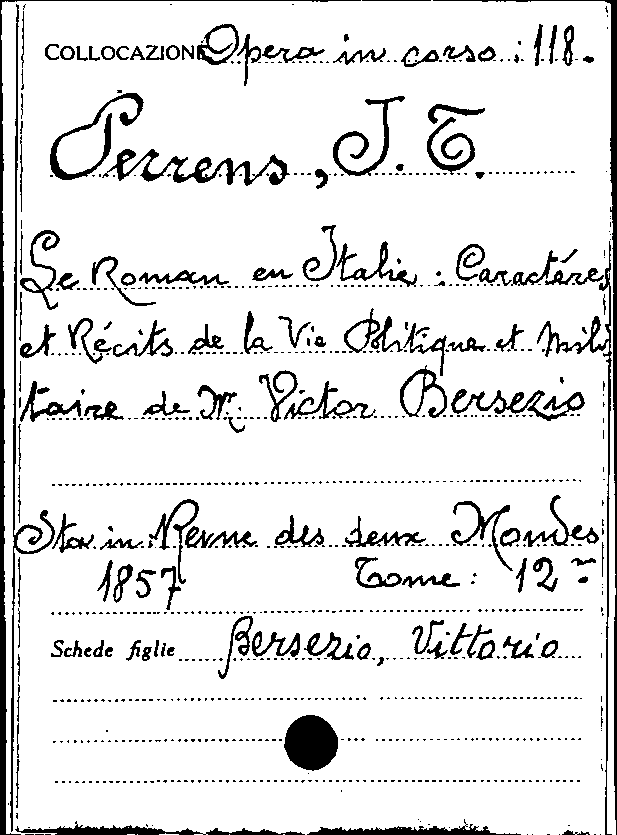 COLLOCAZIONE Opera in corso : 118.
Perrens, J. T.
Le Roman en Italie : Caractéres
et Récits de la Vie Politique et Mili
taire de Mr. Victor Bersezio
Sta in Revue des deux Mondes
1857 Tome : 12
Schede figlie Bersezio, Vittorio